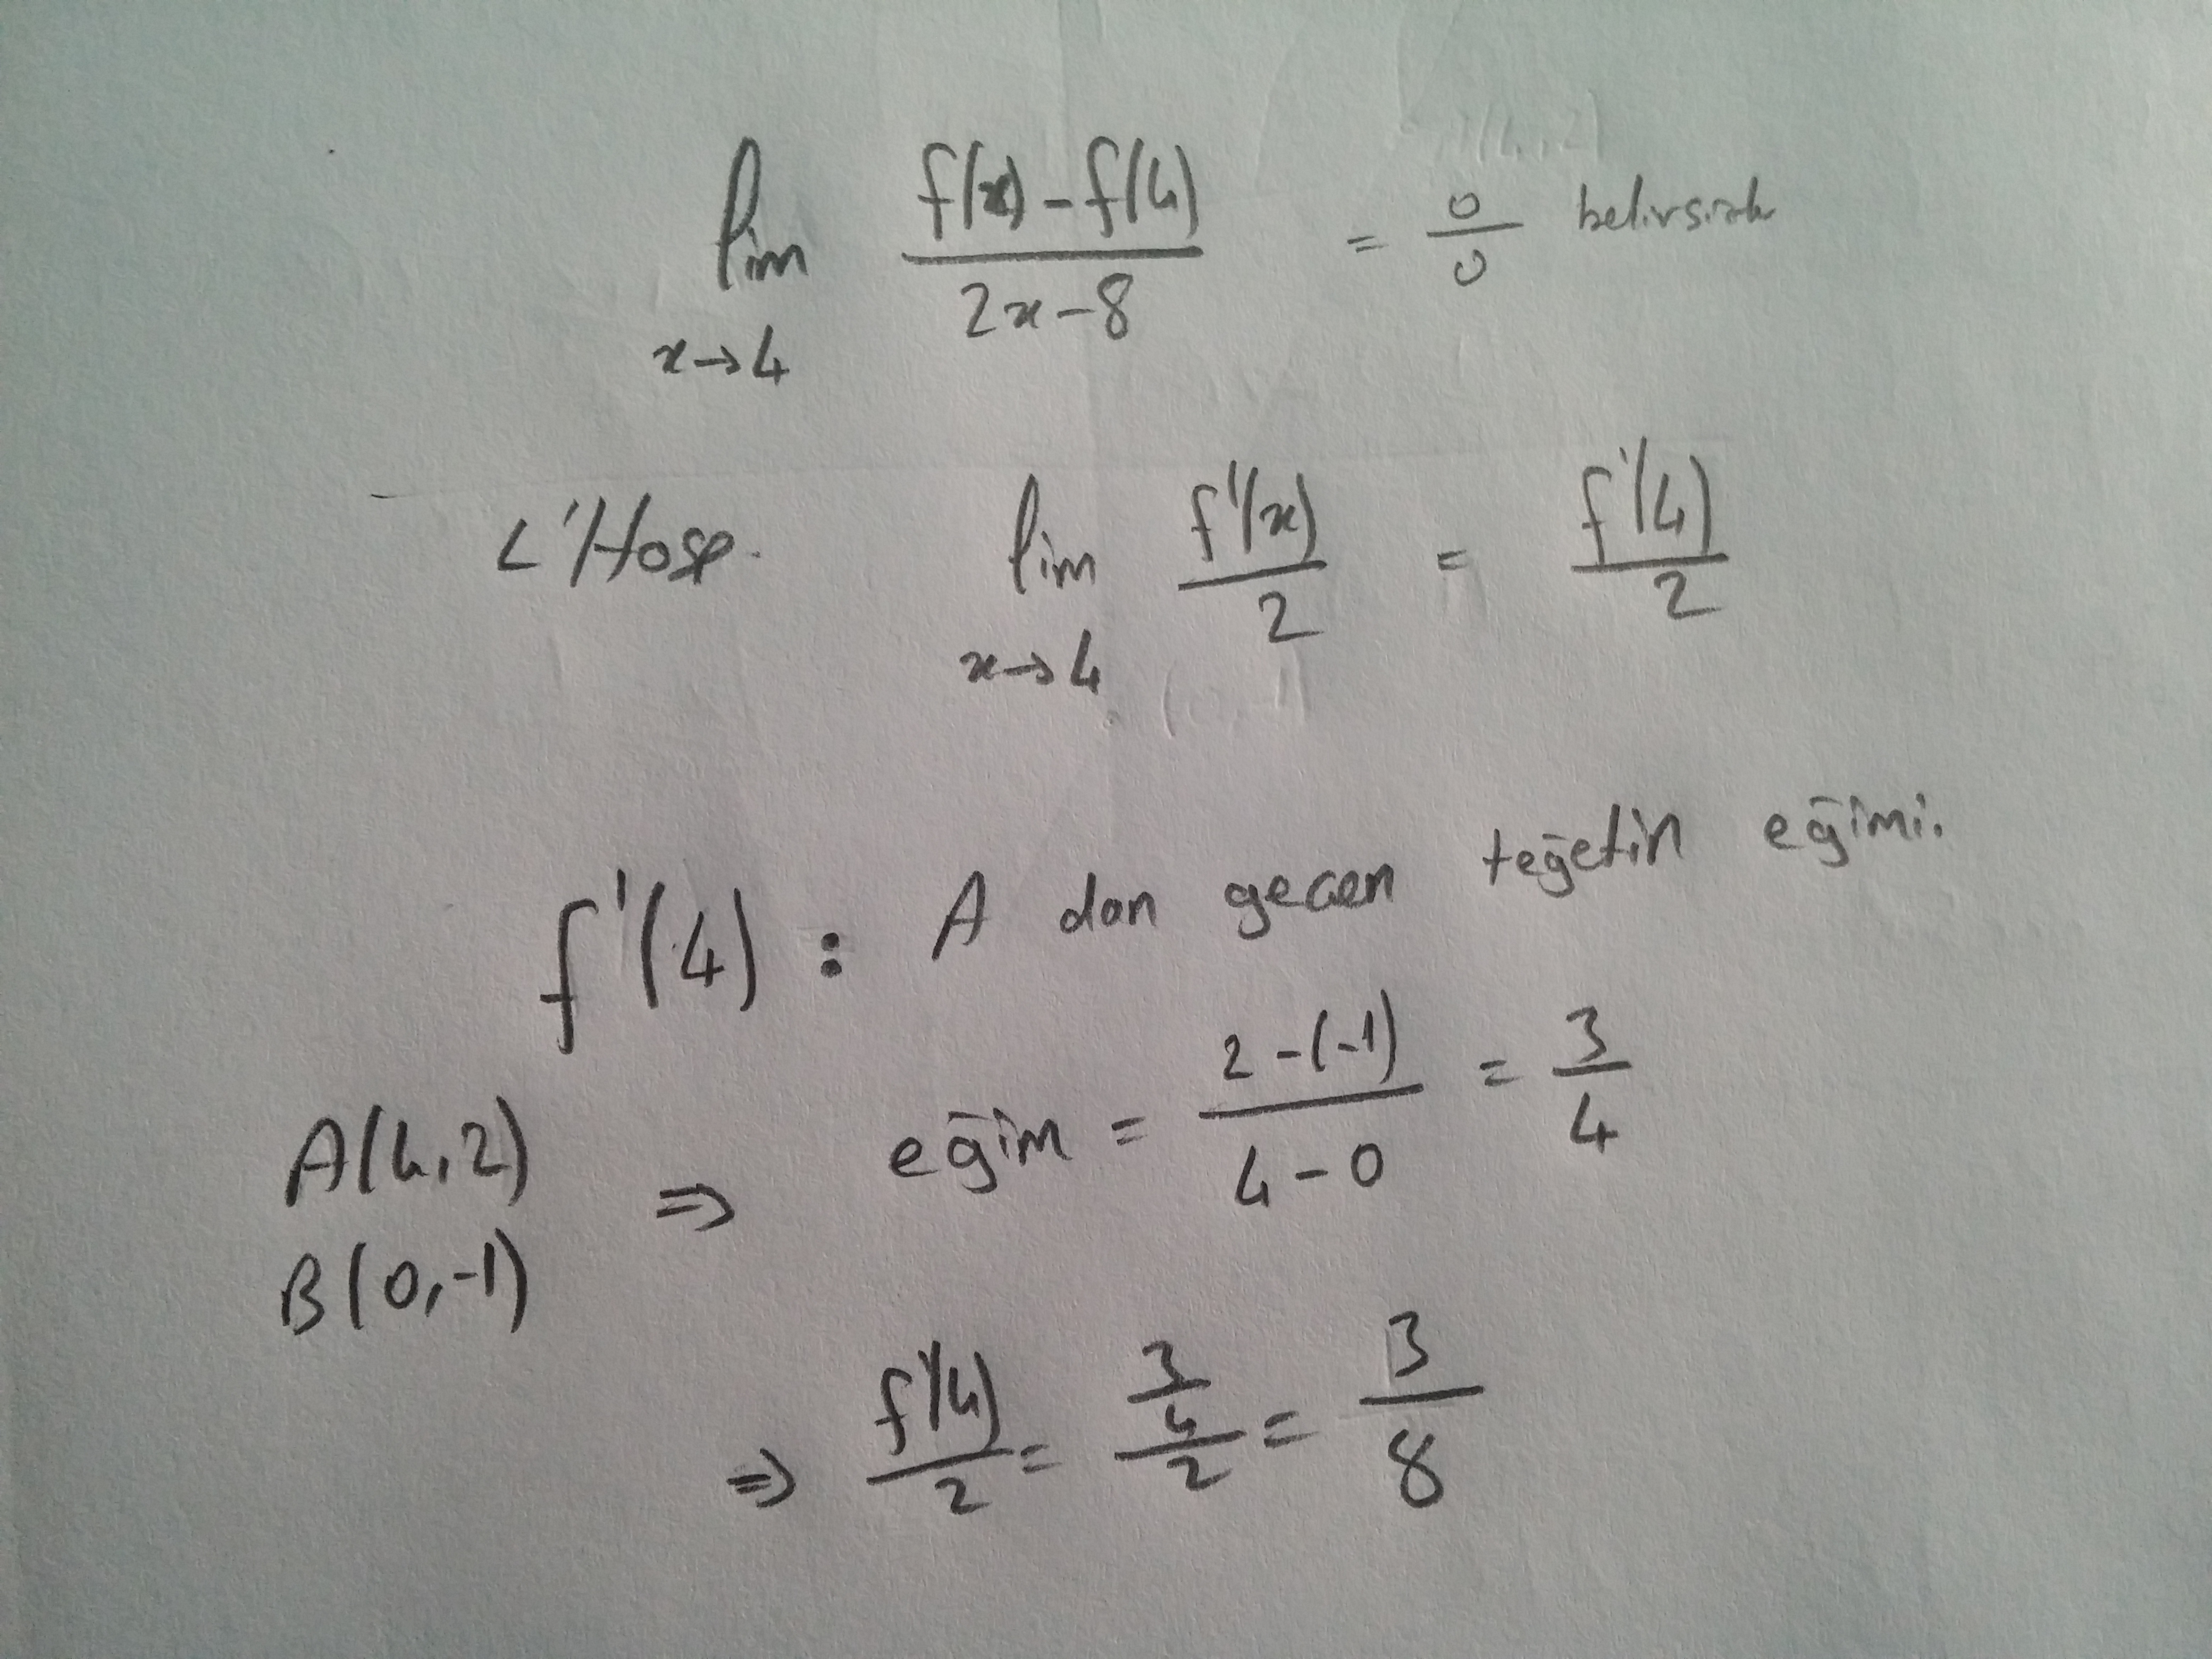 lim x→4 f(x) - f(4) / 2x - 8 = 0/0
L'Hosp. lim x→4 f'(x)/2 = f'(4)/2
f'(4) : A dan geçen teğetin eğimi.
A(4,2) ⇒ eğim = 2-(-1) / 4-0 = 3/4
B(0,-1)
⇒ f'(4)/2 = 3/4/2 = 3/8